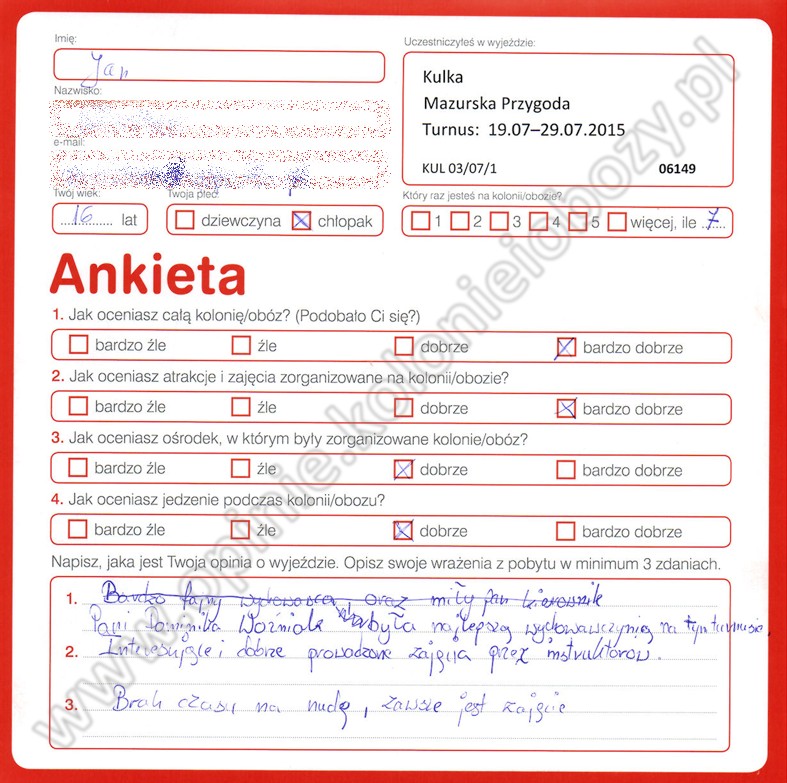 Imię:
Jan
Nazwisko:
e-mail:
Twój wiek:
16 lat
Twoja płeć:
dziewczyna chłopak
Uczestniczyłeś w wyjeździe:
Kulka
Mazurska Przygoda
Turnus: 19.07–29.07.2015
KUL 03/07/1 06149
Który raz jesteś na kolonii/obozie?
1 2 3 4 5 więcej, ile 7
Ankieta
1. Jak oceniasz całą kolonię/obóz? (Podobało Ci się?)
bardzo źle źle dobrze bardzo dobrze
2. Jak oceniasz atrakcje i zajęcia zorganizowane na kolonii/obozie?
bardzo źle źle dobrze bardzo dobrze
3. Jak oceniasz ośrodek, w którym były zorganizowane kolonie/obóz?
bardzo źle źle dobrze bardzo dobrze
4. Jak oceniasz jedzenie podczas kolonii/obozu?
bardzo źle źle dobrze bardzo dobrze
Napisz, jaka jest Twoja opinia o wyjeździe. Opisz swoje wrażenia z pobytu w minimum 3 zdaniach.
1. Bardzo fajny wychowawca oraz miły pan kierownik
Pani Dominika Woźniak była najlepszą wychowawczynią na tym turnusie,
2. Interesujące i dobrze prowadzone zajęcia przez instruktorów.
3. Brak czasu na nudę, zawsze jest zajęcie
www.opinie.kolonieiobozy.pl